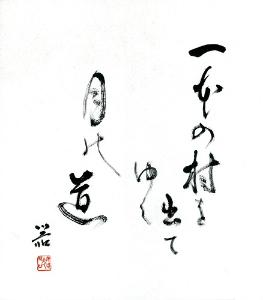 一本の村を
出て
ゆく
月の道
器